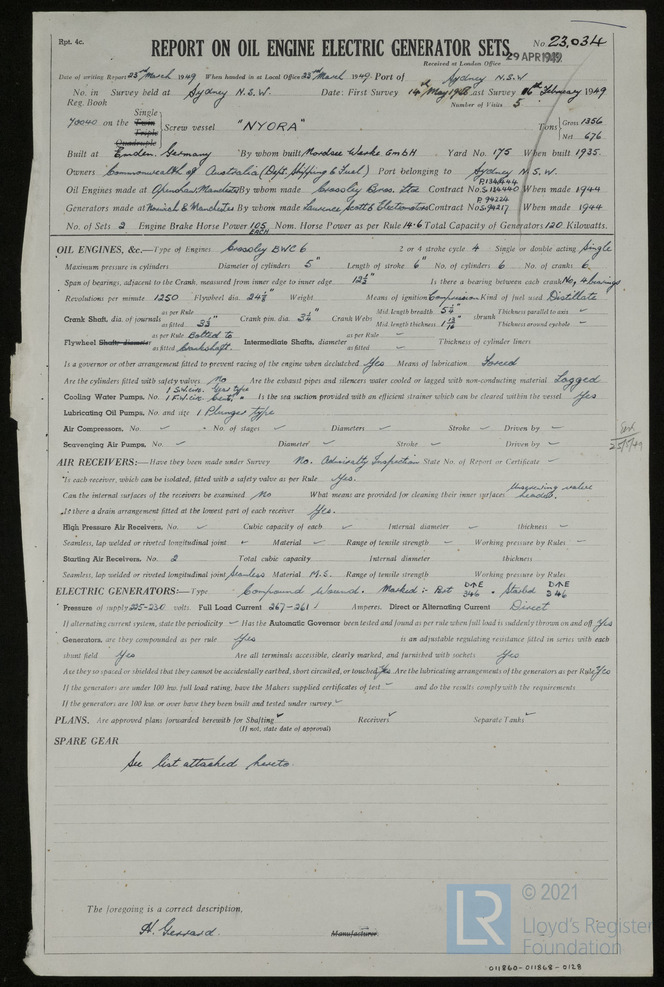 Rpt. 4c.
REPORT ON OIL ENGINE ELECTRIC GENERATOR SETS. No. 23,034
29 APR 1949
Received at London Office
Date of writing Report 23rd March 1949 When handed in at Local Office 23rd March 1949. Port of Sydney N.S.W
No. in Reg. Book Survey held at Sydney N.S.W. Date: First Survey 14th May 1948 Last Survey 16th February 1949
Number of Visits 5
70040 on the Single Twin Triple Quadruple Screw vessel "NYORA" Tons Gross 1356 Net 676
Built at Emden, Germany By whom built Nordsee Werke GmbH Yard No. 175 When built 1935
Owners Commonwealth of Australia (Dept. Shipping & Fuel) Port belonging to Sydney N.S.W.
Oil Engines made at Manchester By whom made Crossley Bros. Ltd Contract No. When made 1944
Generators made at Norwich & Manchester By whom made Laurence Scott & Electromotors Contract No. P. 94224 S. 94217 When made 1944
No. of Sets 2 Engine Brake Horse Power 105 EACH Nom. Horse Power as per Rule 14.6 Total Capacity of Generators 120 Kilowatts.
OIL ENGINES, &c.—Type of Engines Crossley BWC 6 2 or 4 stroke cycle 4 Single or double acting Single
Maximum pressure in cylinders Diameter of cylinders 5" Length of stroke 6" No. of cylinders 6 No. of cranks 6
Span of bearings, adjacent to the Crank, measured from inner edge to inner edge 12½" Is there a bearing between each crank No, 4 bearings
Revolutions per minute 1250 Flywheel dia. 24½" Weight Means of ignition Compression Kind of fuel used Distillate
Crank Shaft, dia. of journals as per Rule as fitted 3½" Crank pin. dia. 3¼" Crank Webs Mid. length breadth 5¼" Mid. length thickness 1 13/16" shrunk Thickness parallel to axis Thickness around eyehole
Flywheel Shaft, diameter as per Rule Bolted to as fitted Crankshaft. Intermediate Shafts, diameter as per Rule as fitted Thickness of cylinder liners
Is a governor or other arrangement fitted to prevent racing of the engine when declutched Yes Means of lubrication Forced
Are the cylinders fitted with safety valves No Are the exhaust pipes and silencers water cooled or lagged with non-conducting material Lagged
Cooling Water Pumps, No. 1 S.W. circ. Gear type 1 F.W. circ. Cent. " Is the sea suction provided with an efficient strainer which can be cleared within the vessel Yes
Lubricating Oil Pumps, No. and size 1 Plunger type
Air Compressors, No. No. of stages Diameters Stroke Driven by
Scavenging Air Pumps, No. Diameter Stroke Driven by
AIR RECEIVERS:—Have they been made under Survey No. Admiralty Inspection State No. of Report or Certificate
Is each receiver, which can be isolated, fitted with a safety valve as per Rule Yes.
Can the internal surfaces of the receivers be examined No What means are provided for cleaning their inner surfaces Unscrewing valve heads.
Is there a drain arrangement fitted at the lowest part of each receiver Yes.
High Pressure Air Receivers, No. Cubic capacity of each Internal diameter thickness
Seamless, lap welded or riveted longitudinal joint Material Range of tensile strength Working pressure by Rules
Starting Air Receivers, No. 2 Total cubic capacity Internal diameter thickness
Seamless, lap welded or riveted longitudinal joint Seamless Material M.S. Range of tensile strength Working pressure by Rules
ELECTRIC GENERATORS:—Type Compound Wound. Marked :- Port D.A.E 346 . Starbd D.A.E 346
Pressure of supply 225-230 volts. Full Load Current 267-261 Amperes. Direct or Alternating Current Direct
If alternating current system, state the periodicity Has the Automatic Governor been tested and found as per rule when full load is suddenly thrown on and off Yes
Generators, are they compounded as per rule Yes is an adjustable regulating resistance fitted in series with each
shunt field Yes Are all terminals accessible, clearly marked, and furnished with sockets Yes
Are they so spaced or shielded that they cannot be accidentally earthed, short circuited, or touched Yes Are the lubricating arrangements of the generators as per Rule Yes
If the generators are under 100 kw. full load rating, have the Makers supplied certificates of test and do the results comply with the requirements
If the generators are 100 kw. or over have they been built and tested under survey
PLANS. Are approved plans forwarded herewith for Shafting Receivers Separate Tanks
(If not, state date of approval)
SPARE GEAR
See list attached hereto.
The foregoing is a correct description,
H. Gerrard. Manufacturer.
LR
© 2021
Lloyd's Register
Foundation
011860-011868-0128